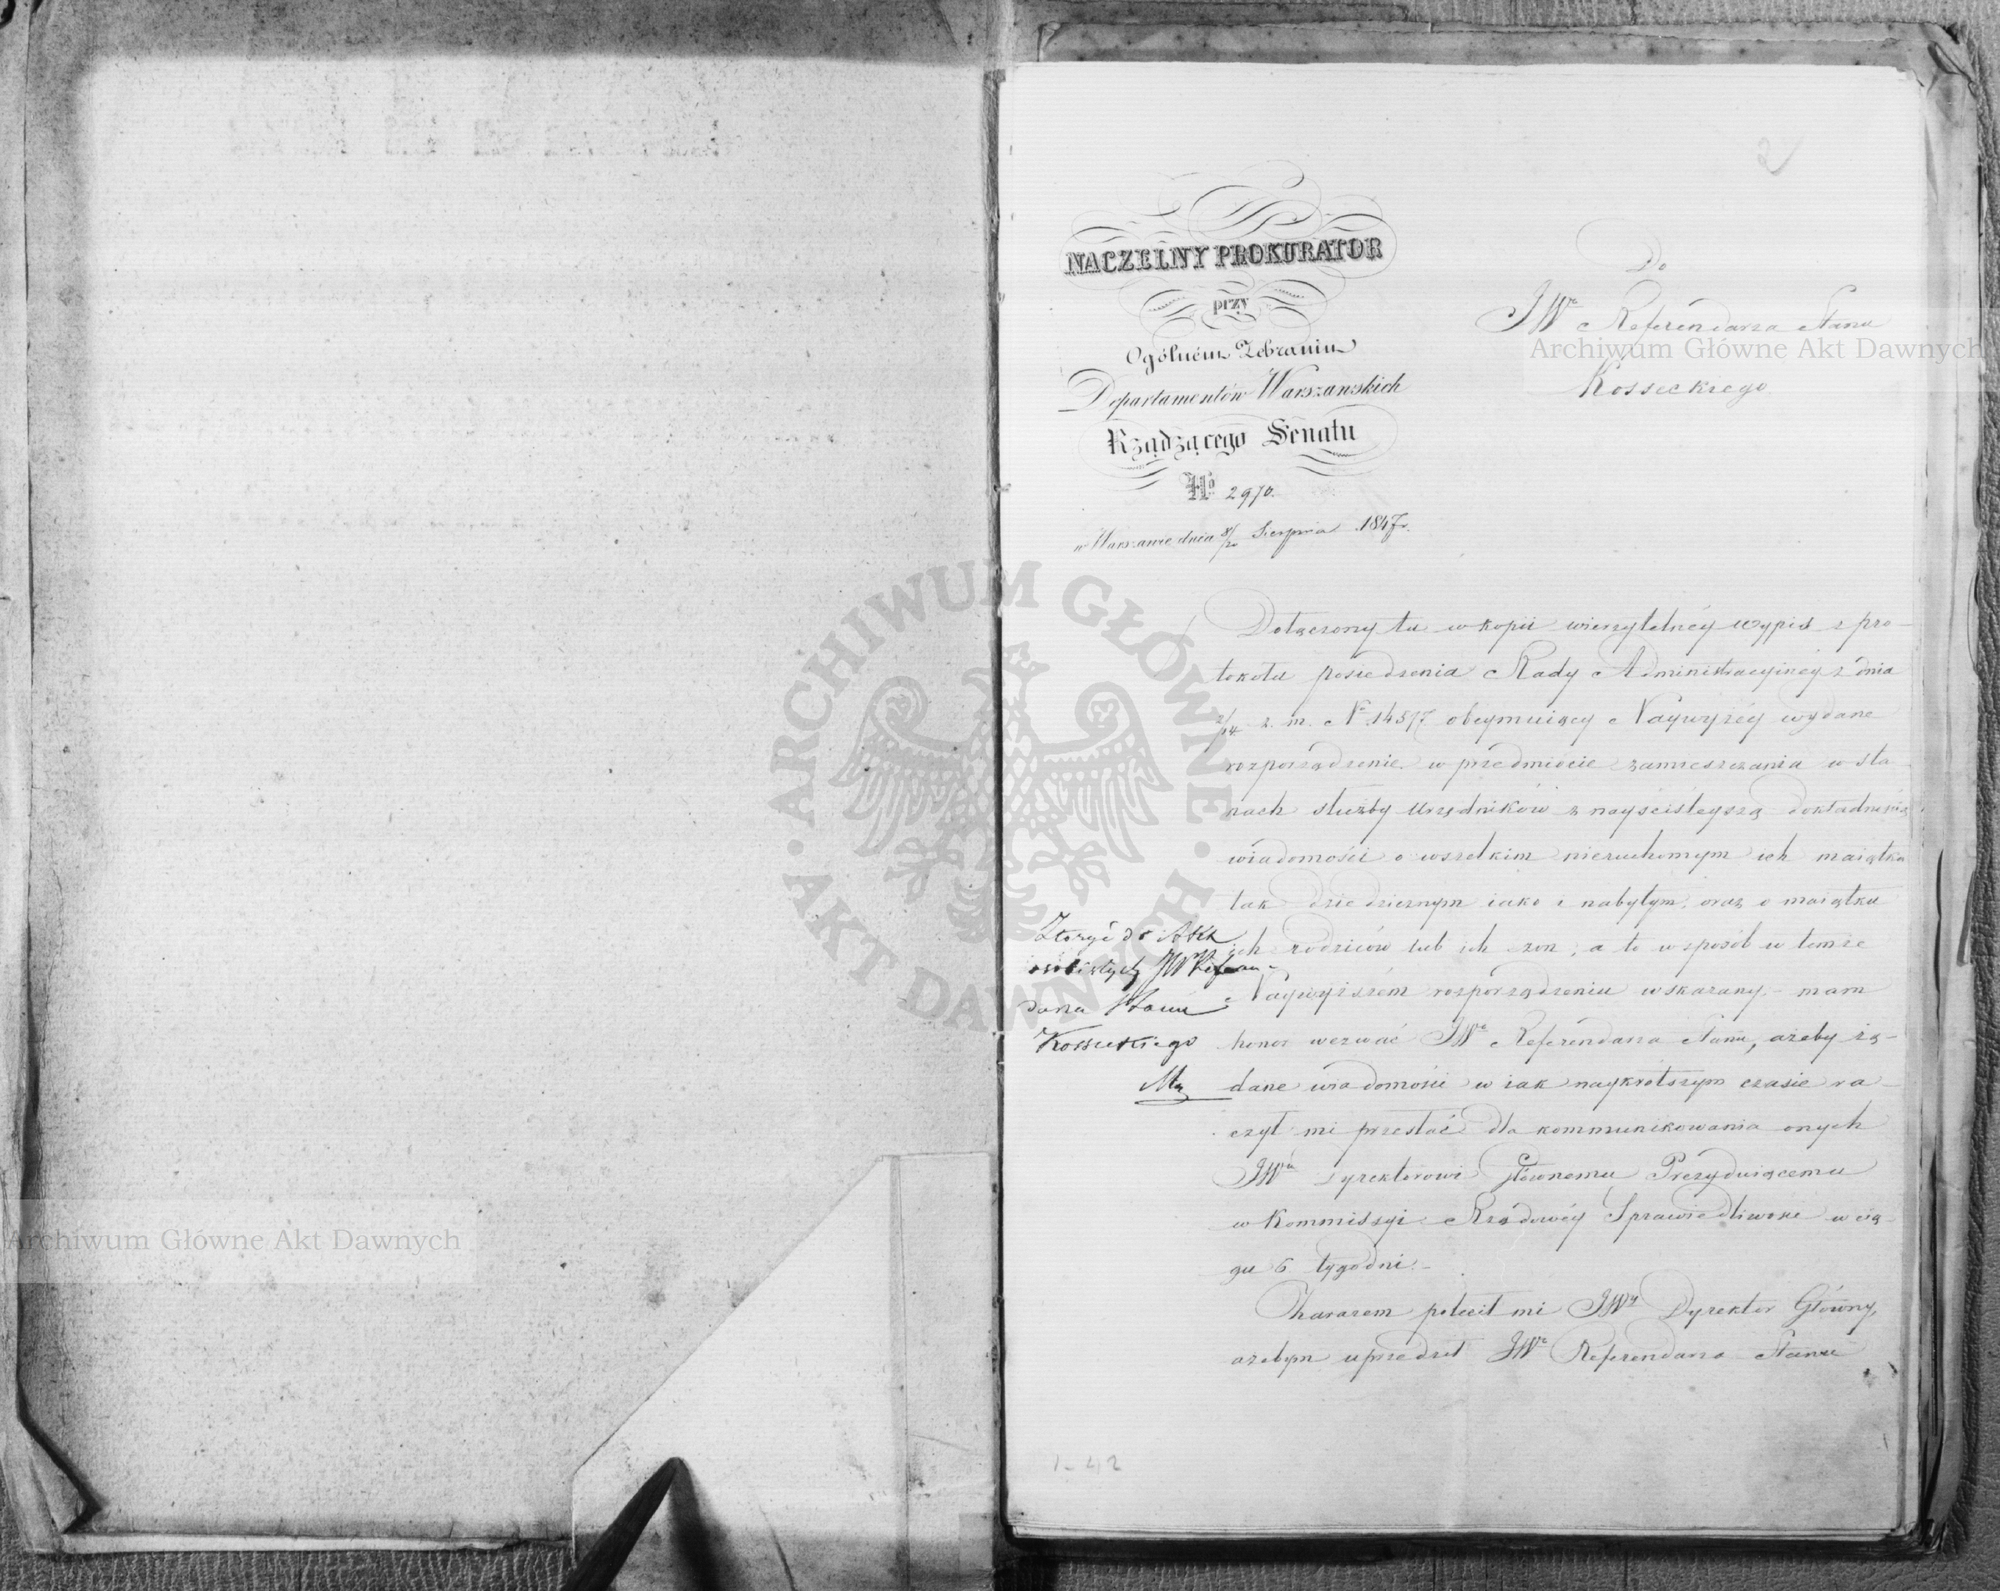 2
NACZELNY PROKURATOR
przy
Ogólném Zebraniu
Departamentów Warszawskich
Rządzącego Senatu
No 2970.
w Warszawie dnia 8/20 Sierpnia 1847 r.
Do
JWo Referendarza Stanu
Kosseckiego
Dołączony tu w kopii wierzytelnéy wypis z pro-
tokołu posiedzenia Rady Administracyinéy z dnia
2/14 z. m. No 14577 obeymuiący Naywyżéy wydane
rozporządzenie w przedmiocie zamieszczania w sta
nach służby Urzędników z nayściśleyszą dokładnością
wiadomości o wszelkim nieruchomym ich maiątku
tak dziedzicznym iako i nabytym, oraz o maiątku
ich rodziców lub ich żon, a to w sposób w temże
Naywyższém rozporządzeniu wskazany, – mam
honor wezwać JWo Referendarza Stanu, ażeby żą-
dane wiadomości w iak naykrótszym czasie ra-
czył mi przesłać dla kommunikowania onych
JWu Dyrektorowi Głównemu Prezyduiącemu
w Kommissyi Rządowéy Sprawiedliwości w cią-
gu 6 tygodni. –
Zarazem polecił mi JWy Dyrektor Główny,
ażebym uprzedził JWo Referendarza Stanu
Złożyć do Akt
osobistych JW Referen-
darza Stanu
Kosseckiego
1-42
ARCHIWUM GŁÓWNE AKT DAWNYCH
Archiwum Główne Akt Dawnych
Archiwum Główne Akt Dawnych